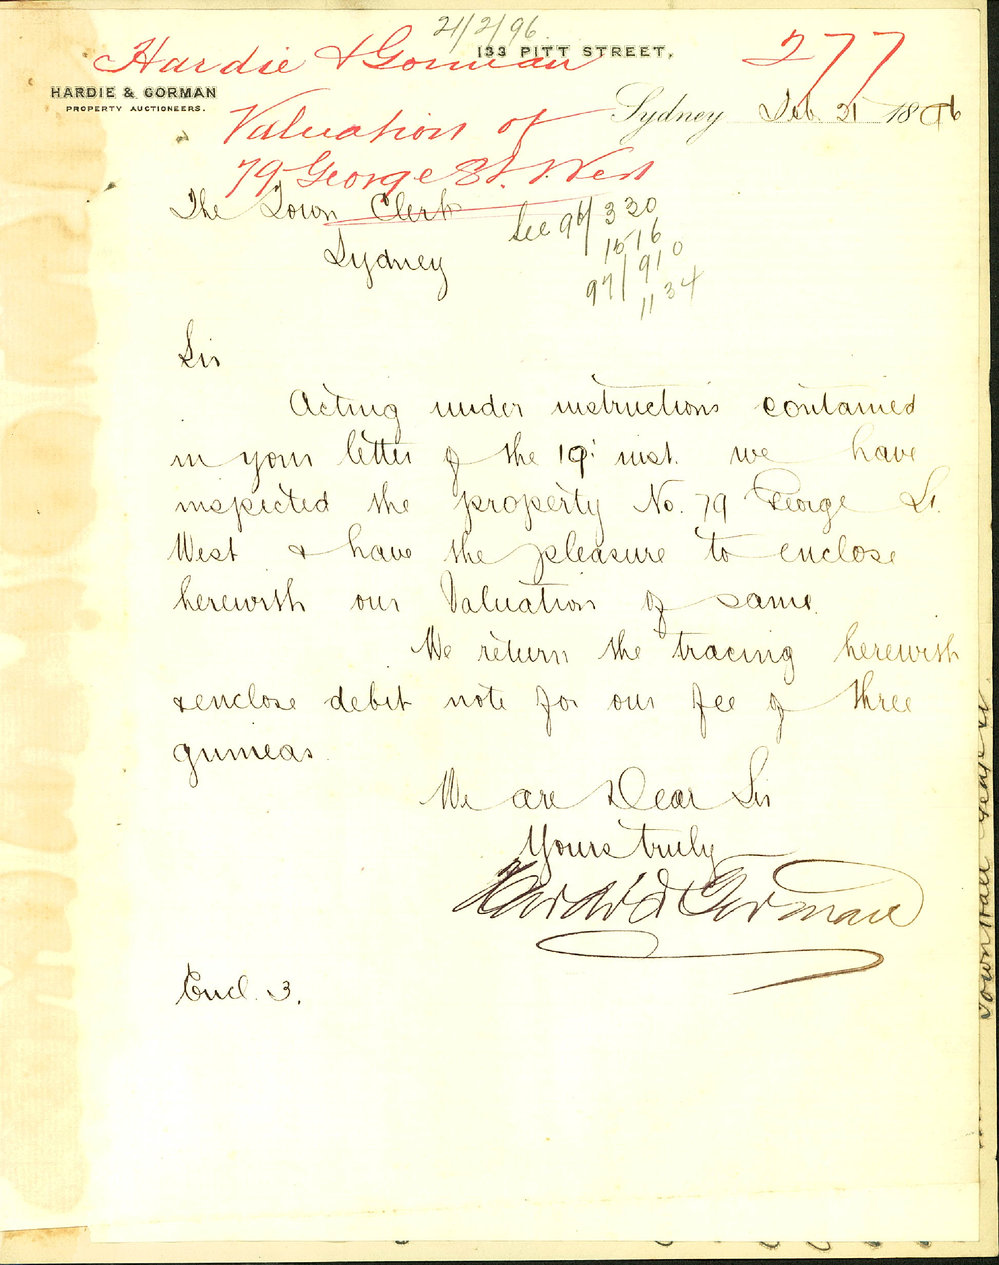 21/2/96.
133 PITT STREET,
Hardie & Gorman
277
HARDIE & GORMAN
PROPERTY AUCTIONEERS.
Sydney Feb. 21 1896
Valuation of
79 George St. West
The Town Clerk
Sydney
See 96/330
1516
97/910
1134
Sir
Acting under instructions contained
in your letter of the 19: inst. we have
inspected the property No. 79 George St.
West & have the pleasure to enclose
herewith our Valuation of same.
We return the tracing herewith
& enclose debit note for our fee of three
guineas.
We are Dear Sir
Yours truly
Hardie & Gorman
Encl. 3.
Town Hall George St.